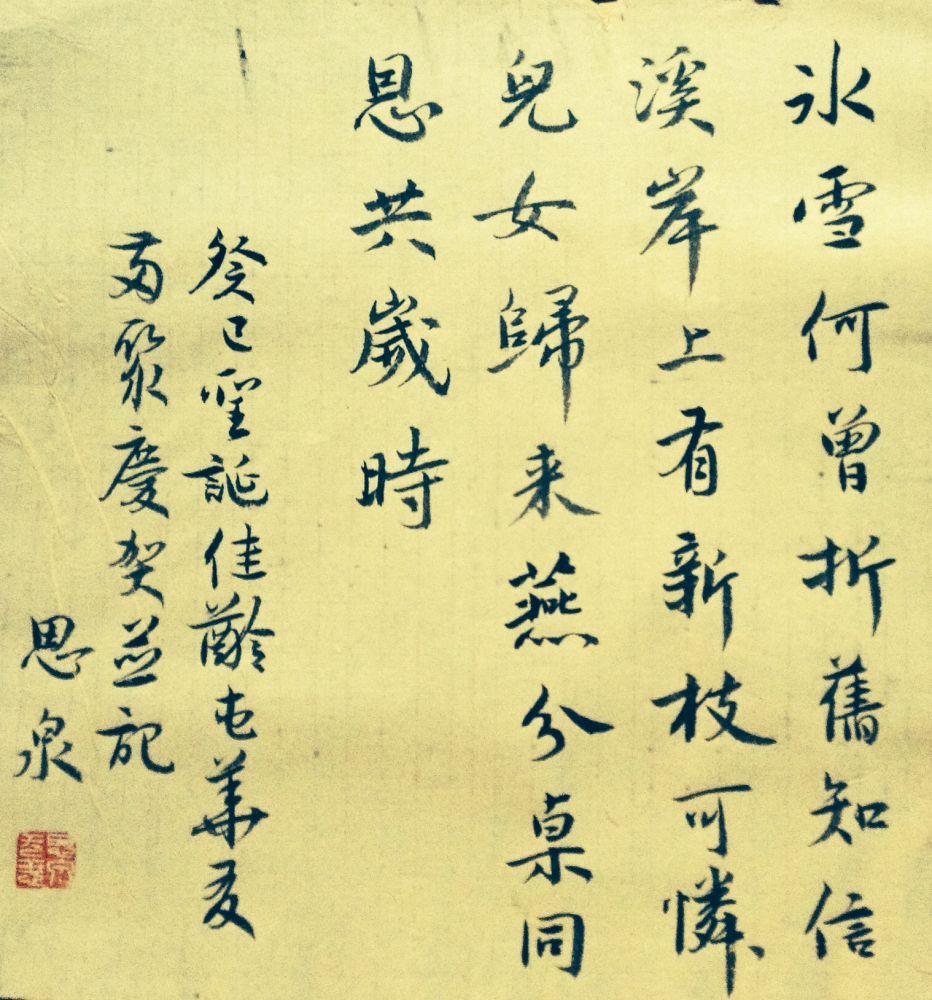 冰雪何曾折舊知信
溪岸上有新枝可憐
兒女歸来燕分桌同
恩共歲時
癸巳聖誕佳齡屯華友
聚慶癸並記
思泉